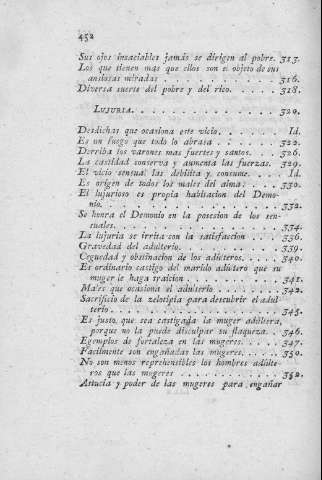 452
Sus ojos insaciables jamás se dirigen al pobre. 313.
Los que tienen mas que ellos son el objeto de sus
ansiosas miradas . . . . . . . . . . . . 316.
Diversa suerte del pobre y del rico. . . . . . 318.
LUJURIA. . . . . . . . . . . . . . . . . 320.
Desdichas que ocasiona este vicio. . . . . . . Id.
Es un fuego que todo lo abrasa . . . . . . . 322.
Derriba los varones mas fuertes y santos. . . . 326.
La castidad conserva y aumenta las fuerzas. 329.
El vicio sensual las debilita y consume. . . . Id.
Es origen de todos los males del alma. . . . . 330.
El lujurioso es propia habitacion del Demo-
nio. . . . . . . . . . . . . . . . . . 332.
Se honra el Demonio en la posesion de los sen-
suales. . . . . . . . . . . . . . . . . 334.
La lujuria se irrita con la satisfaccion . . . . 336.
Gravedad del adulterio. . . . . . . . . . . 339.
Ceguedad y obstinacion de los adúlteros. . . . 340.
Es ordinario castigo del marido adúltero que su
muger le haga traicion . . . . . . . . . . 341.
Males que ocasiona el adulterio . . . . . . . 342.
Sacrificio de la zelotipia para descubrir el adul
terio . . . . . . . . . . . . . . . . . 345.
Es justo, que sea castigada la muger adúltera,
porque no la puede disculpar su flaqueza. . 346.
Egemplos de fortaleza en las mugeres. . . . . 347.
Facilmente son engañadas las mugeres. . . . . 350.
No son menos reprehensibles los hombres adúlte-
ros que las mugeres . . . . . . . . . . . 352.
Astucia y poder de las mugeres para engañar